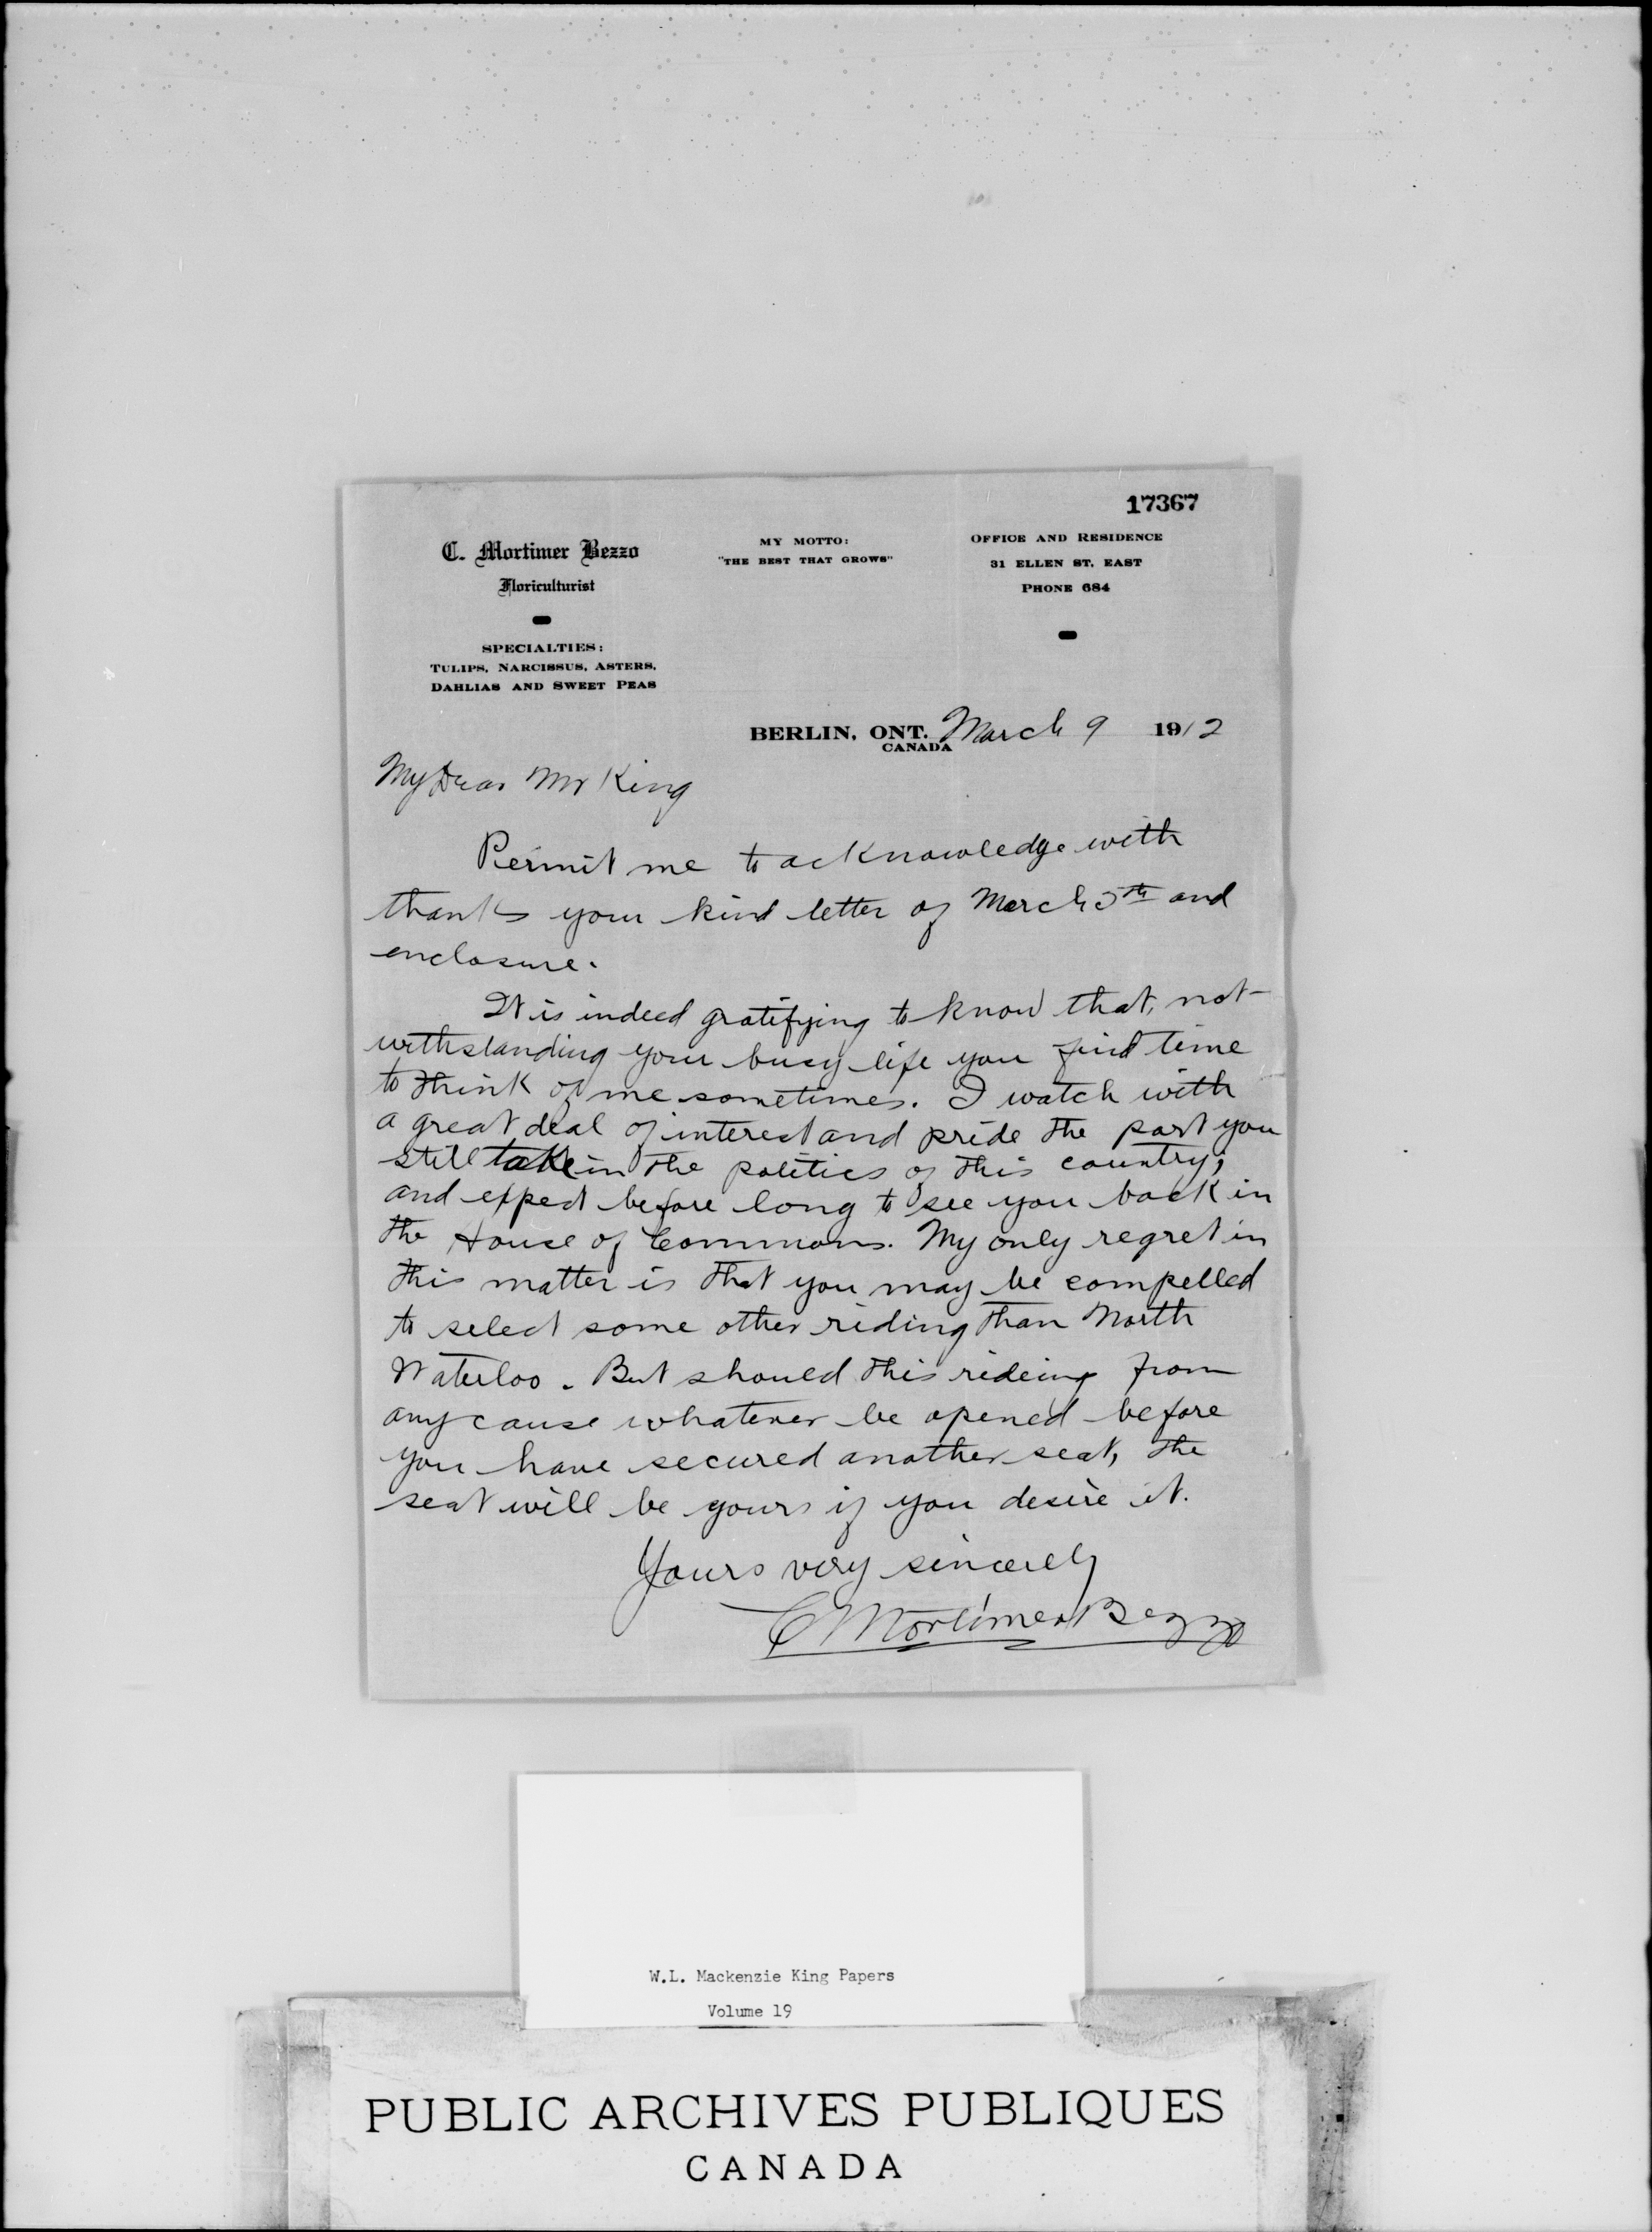 17367
C. Mortimer Bezzo
Floriculturist
SPECIALTIES:
TULIPS, NARCISSUS, ASTERS,
DAHLIAS AND SWEET PEAS
MY MOTTO:
"THE BEST THAT GROWS"
OFFICE AND RESIDENCE
31 ELLEN ST. EAST
PHONE 684
BERLIN, ONT. March 9 1912
CANADA
My Dear Mr King
Permit me to acknowledge with
thanks your kind letter of March 5th and
enclosure.
It is indeed gratifying to know that, not-
withstanding your busy life you find time
to think of me sometimes. I watch with
a great deal of interest and pride the part you
still take in the politics of this country;
and expect before long to see you back in
the House of Commons. My only regret in
this matter is that you may be compelled
to select some other riding than North
Waterloo. But should this rideing from
any cause whatever be opened before
you have secured another seat, the
seat will be yours if you desire it.
Yours very sincerely
C Mortimer Bezzo
W.L. Mackenzie King Papers
Volume 19
PUBLIC ARCHIVES PUBLIQUES
CANADA